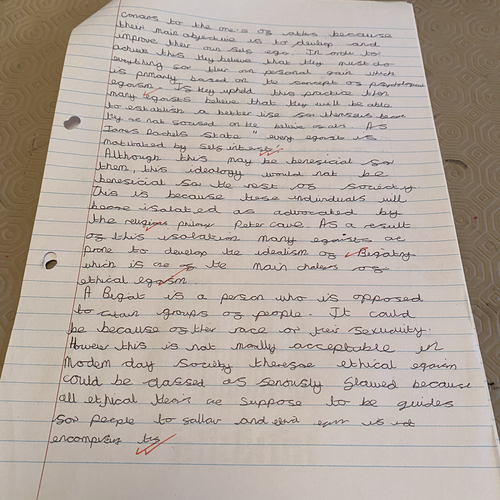 concers to the one's of others because
their main objective is to develop and
improve their own self ego. In order to
achieve this they believe that they must do
everything for their own personal gain which
is primarly based on the concept of psychological
egoism. If they uphold this practice then
many egoists believe that they will be able
to establish a better life for themselves
they are not focused on the of As
James Rachels state "every egoist is
motivated by self intrest".
Although this may be beneficial for
them, this ideology would not be
beneficial for the rest of society
This is because these individuals will
become isolated as advocated by
the religious Peter Cave. As a result
of this isolation many egoists are
prone to develop the idealism of Bigatry
which is one of the main of
ethical egoism.
A Bigot is a person who is opposed
to certain groups of people. It could
be because of their race or their sexuality.
However this is not morally acceptable in
Modern day society therefore ethical egoism
could be classed as seriously flawed because
all ethical are suppose to be guides
for people to follow and is
encompass